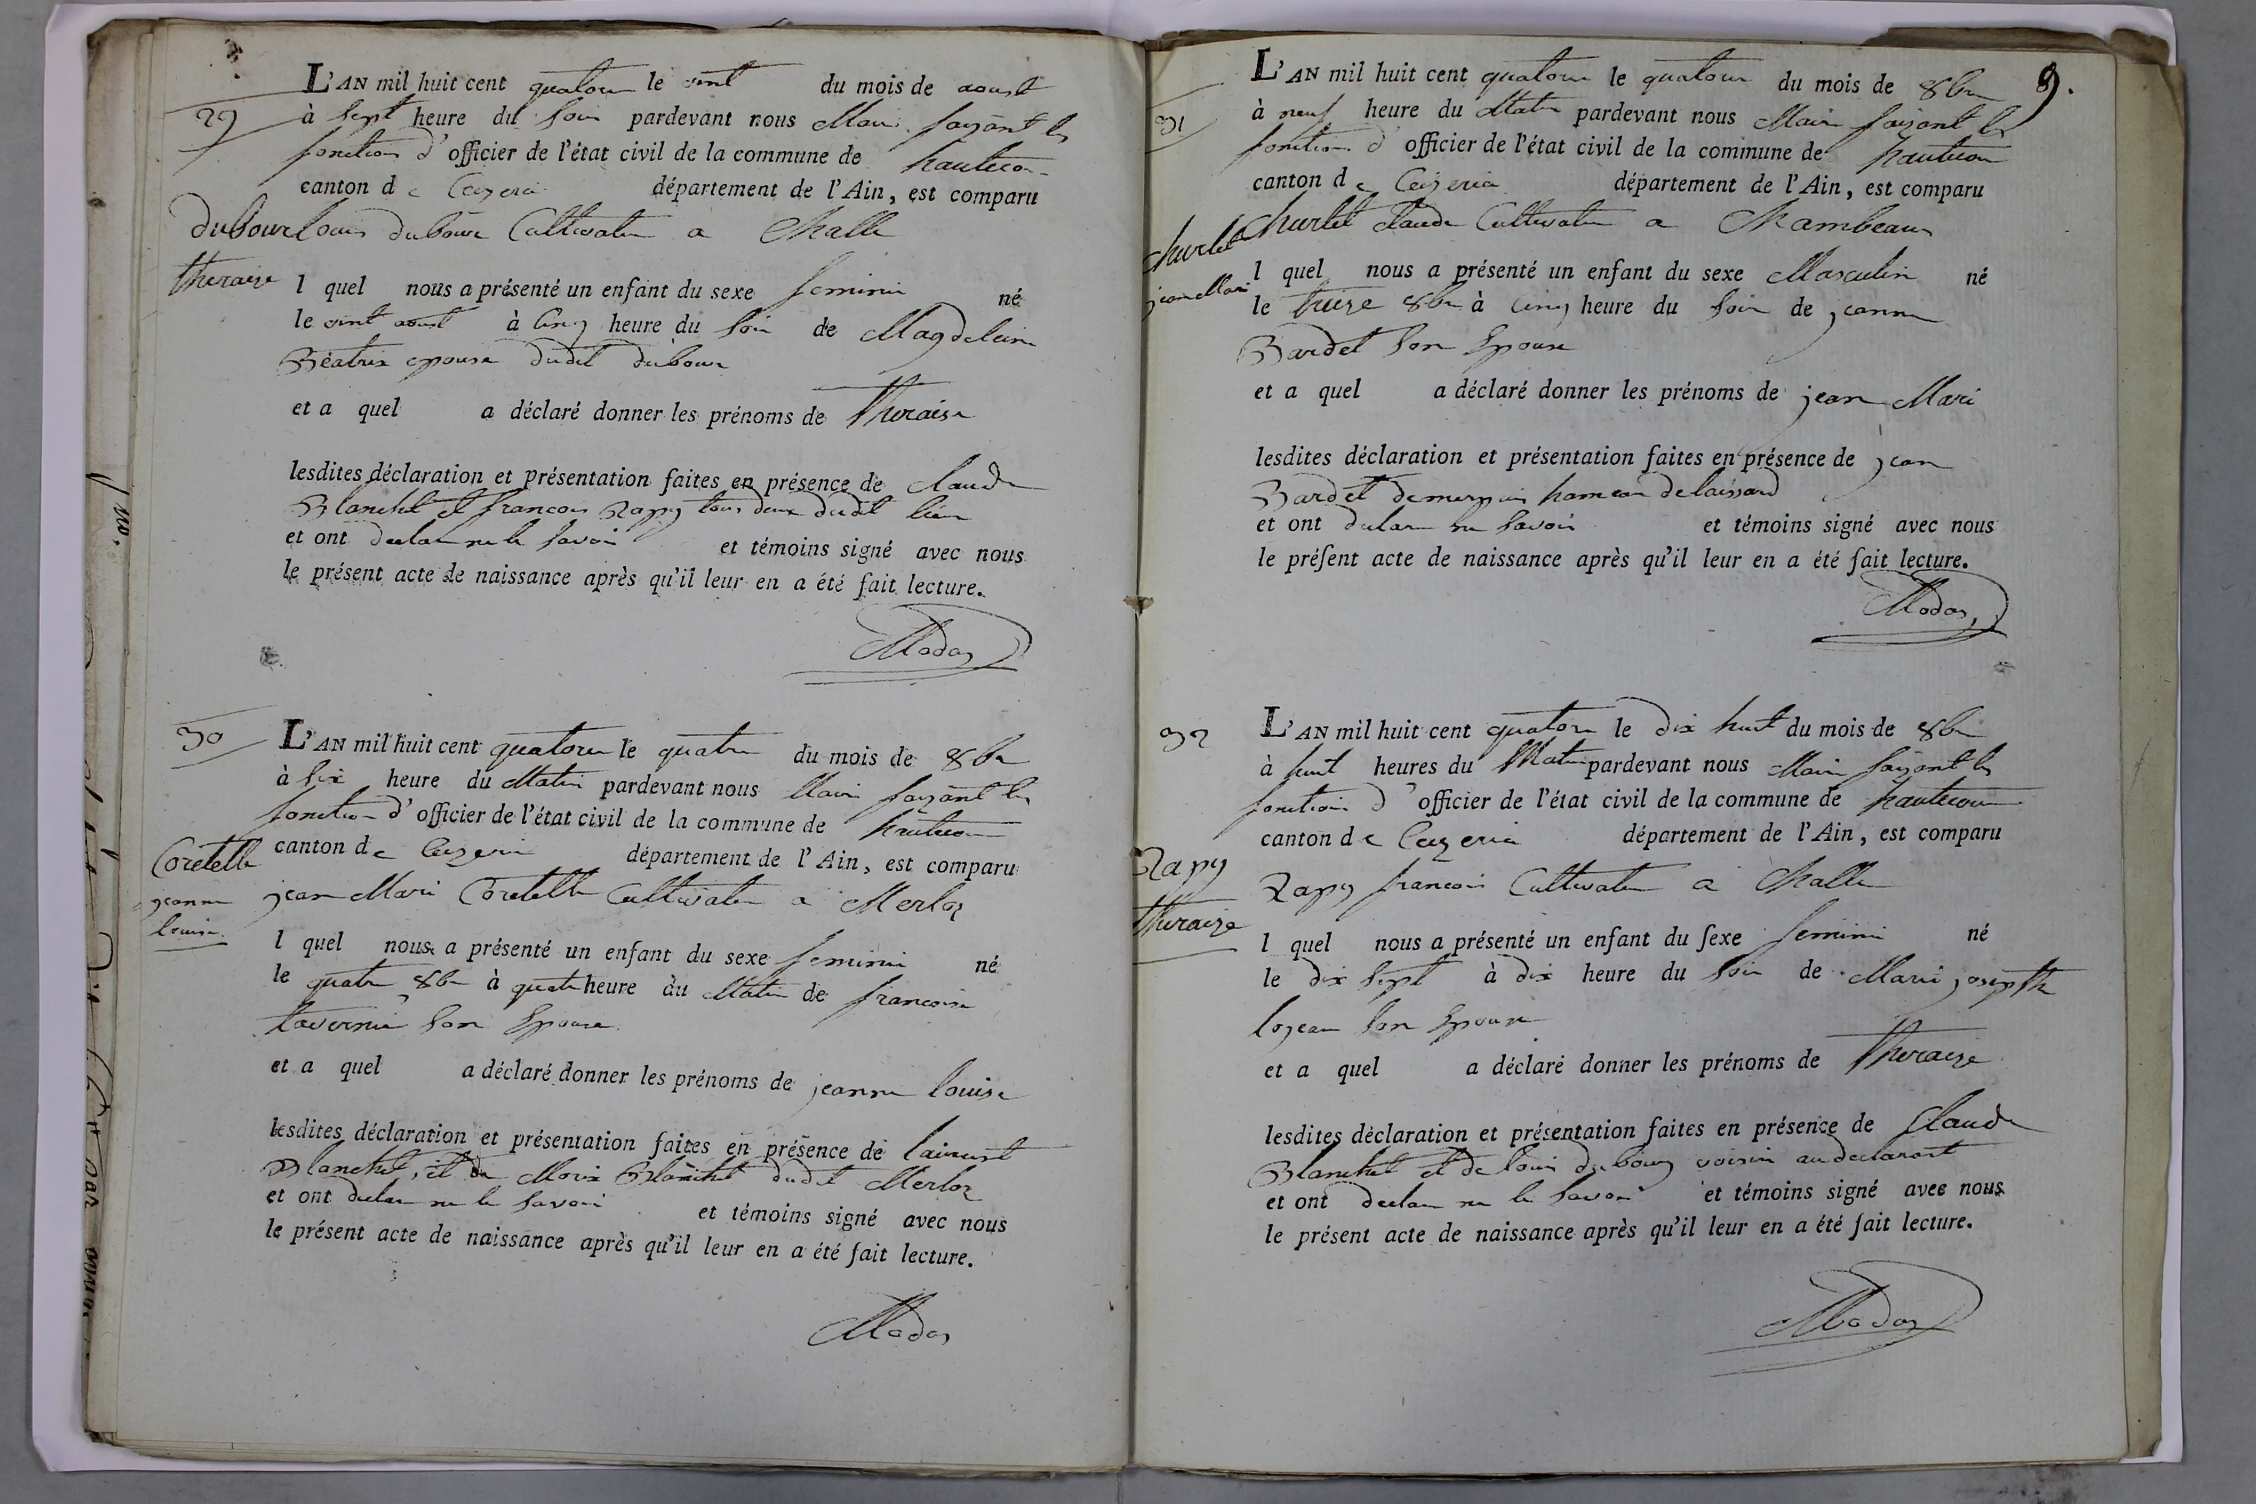 29
L'AN mil huit cent quatorze le vint du mois de aoust
à sept heure du soir pardevant nous Maire faisant les
fonction d'officier de l'état civil de la commune de hautecour
canton de Ceyzeria département de l'Ain, est comparu
dubour Louis dubour Cultivateur a Challe
theraize
l quel nous a présenté un enfant du sexe feminin né
le vint aoust à cinq heure du soir de Magdeleine
Béatrix epouse dudit dubour
et a quel a déclaré donner les prénoms de theraise
lesdites déclaration et présentation faites en présence de claude
Blanchet et francois Rapy tous deux dudit lieu
et ont declare ne le savoir et témoins signé avec nous
le présent acte de naissance après qu'il leur en a été fait lecture.
30
L'AN mil huit cent quatorze le quatre du mois de 8bre
à six heure du Matin pardevant nous Maire faisant les
fonction d'officier de l'état civil de la commune de hautecour
canton de Ceyzeria département de l'Ain, est comparu
Coretelle
jeanne
louise
jean Marie Coretelle Cultivateur a Merloz
l quel nous a présenté un enfant du sexe feminin né
le quatre 8bre à quatre heure du Matin de francoise
tavernie son Epouse
et a quel a déclaré donner les prénoms de jeanne louise
lesdites déclaration et présentation faites en présence de
Blanchet, et de Blanchet dudit Merloz
et ont declare ne le savoir et témoins signé avec nous
le présent acte de naissance après qu'il leur en a été fait lecture.
9.
31
L'AN mil huit cent quatorze le quatorze du mois de 8bre
à neuf heure du Matin pardevant nous Maire faisant les
fonction d'officier de l'état civil de la commune de hautecour
canton de Ceyzeria département de l'Ain, est comparu
churlet
jean Marie
churlet claude Cultivateur a Chambeau
l quel nous a présenté un enfant du sexe Masculin né
le treize 8bre à cinq heure du soir de jeanne
Bardet son Epouse
et a quel a déclaré donner les prénoms de jean Marie
lesdites déclaration et présentation faites en présence de jean
Bardet hameau
et ont declare ne savoir et témoins signé avec nous
le présent acte de naissance après qu'il leur en a été fait lecture.
32
L'AN mil huit cent quatorze le dix huit du mois de 8bre
à huit heures du Matin pardevant nous Maire faisant les
fonction d'officier de l'état civil de la commune de hautecour
canton de Ceyzeria département de l'Ain, est comparu
Rapy
theraize
Rapy francois Cultivateur a Challe
l quel nous a présenté un enfant du sexe feminin né
le dix sept à dix heure du soir de Marie josepthe
lozeau son Epouse
et a quel a déclaré donner les prénoms de theraize
lesdites déclaration et présentation faites en présence de Claude
Blanchet et de louis dubour voisin au declarant
et ont declare ne le savoir et témoins signé avec nous
le présent acte de naissance après qu'il leur en a été fait lecture.